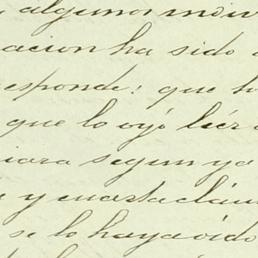 algunos indiv
acion ha sido
esponde: que h
que lo oyó leér
segun ya
y cuarta cláu
se lo haya oido